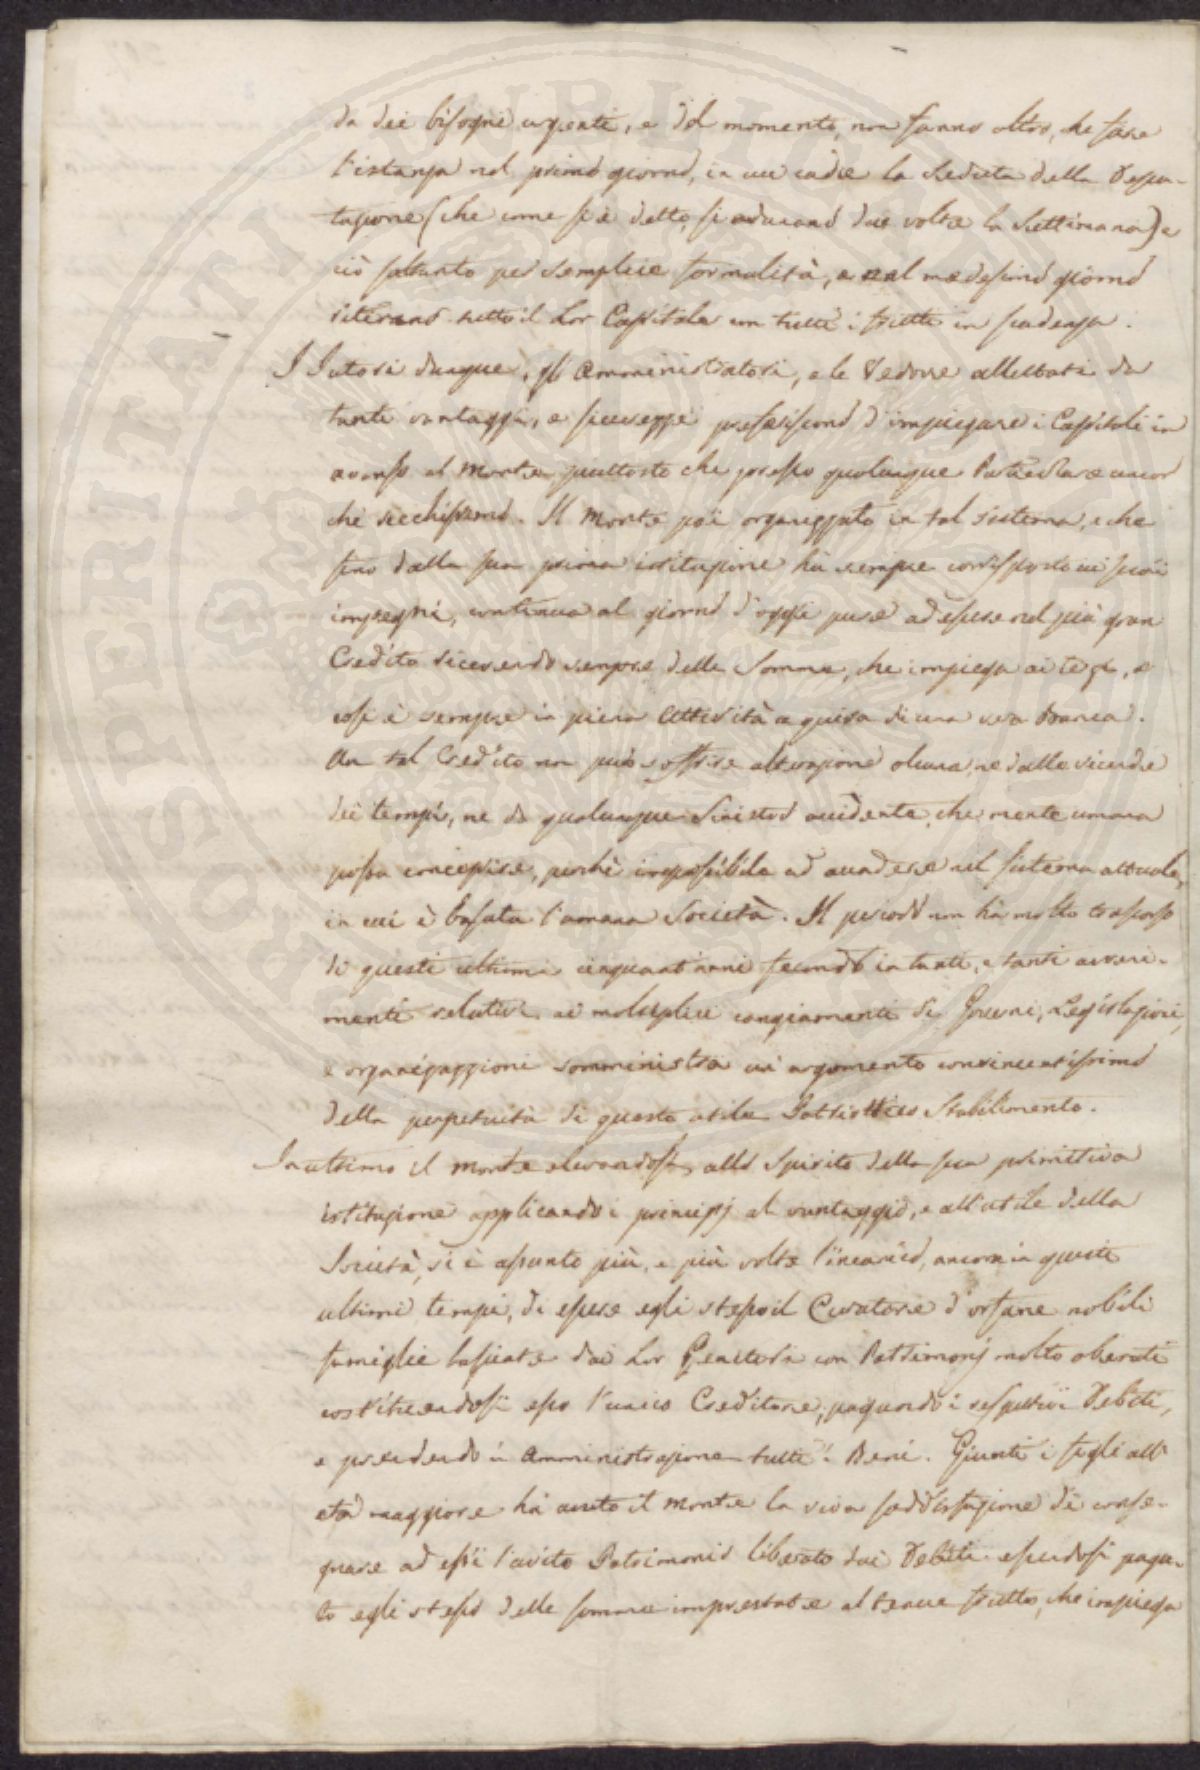 da dei bisogni urgenti, e del momento, non fanno altro, che fare
l'istanza nel primo giorno, in cui cade la Seduta della Depu-
tazione (che come si è detto, si adunano due volte la Settimana) e
ciò soltanto per semplice formalità, e nel medesimo giorno
ritirano tutto il Lor Capitale con tutti i frutti in scadenza.
I Tutori dunque, gl' Amministratori, e le Vedove allettati da
tanti vantaggi, e sicurezze preferiscono d'impiegare i Capitali in
avanzo al Monte piuttosto che presso qualunque Particolare ancor
chè ricchissimo. Il Monte poi organizzato in tal sistema, e che
fino dalla sua prima istituzione hà sempre corrisposto ai suoi
impegni, continua al giorno d'oggi pure ad essere nel più gran
Credito ricevendo sempre delle Somme, che impiega ai
così è sempre in piena Attività a guisa di una vera Banca.
Un tal Credito non può soffrire alterazione alcuna, ne dalle vicende
dei tempi, ne da qualunque Sinistro accidente, che mente umana
possa concepire, perchè impossibile ad accadere nel sistema attuale,
in cui è basata l'umana Società. Il periodo non hà molto trascorso
di questi ultimi cinquant'anni fecondo in tanti, e tanti avveni-
menti relativi ai moltiplici cangiamenti di Governi, Legislazioni,
e organizzazioni somministra un argomento convincentissimo
della perpetuità di questo utile Patriottico Stabilimento.
In ultimo il Monte elevandosi allo Spirito della sua primitiva
istituzione applicando i principj al vantaggio, e all'utile della
Società, si è assunto più, e più volte l'incarico, ancora in questi
ultimi tempi, di essere egli stesso il Curatore d'orfane nobili
famiglie lasciate dai Lor Genitori con Patrimonj molto oberati
costituendosi esso l'unico Creditore, pagando i respettivi Debiti,
e prendendo in Amministrazione tutti i Beni. Giunti i figli all'
età maggiore hà avuto il Monte la viva soddisfazione di conse-
gnare ad essi l'avito Patrimonio liberato dai Debiti essendosi paga-
to egli stesso delle somme imprestate al tenue frutto, che impiega
PROSPERITATI PUBLICAE